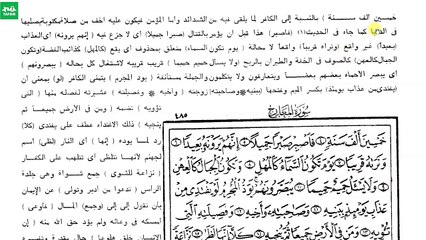 خمسين الف سنة) بالنسبة إلى الكافر لما يلقى فيه من الشدائد وأما المؤمن فيكون عليه اخف من صلاة مكتوبة يصليها
فى الدنيا كما جاء فى الحديث (فاصبر) هذا قبل ان يؤمر بالقتال (صبرا جميلا) اى لا جزع فيه (إنهم يرونه) اى العذاب
(بعيدا) غير واقع (ونراه قريبا) واقعا لا محالة (يوم تكون السماء) متعلق بمحذوف اى يقع (كالمهل) كذائب الفضة (وتكون
الجبال كالعهن) كالصوف فى الخفة والطيران بالريح (ولا يسأل حميم حميما) قريب قريبه لاشتغال كل بحاله (يبصرونهم)
اى يبصر الأحماء بعضهم بعضا ويتعارفون ولا يتكلمون والجملة مستأنفة (يود المجرم) يتمنى الكافر (لو) بمعنى ان
(يفتدى من عذاب يومئذ) بكسر الميم وفتحها (ببنيه وصاحبته) زوجته (وأخيه وفصيلته) عشيرته لفصله منها (التى
تؤويه) تضمه (ومن فى الارض جميعا ثم
ينجيه) ذلك الافتداء عطف على يفتدى (كلا)
رد لما يوده (إنها) اى النار (لظى) اسم
لجهنم لأنها تتلظى اى تتلهب على الكفار
(نزاعة للشوى) جمع شواة وهى جلدة
الرأس (تدعوا من ادبر وتولى) عن الإيمان
بأن تقول إلى إلى (وجمع) المال (فأوعى)
امسكه فى وعائه ولم يؤد حق الله منه (إن
الإنسان خلق هلوعا)
سورة المعارج
٤٨٥
خَمْسِينَ أَلْفَ سَنَةٍ فَاصْبِرْ صَبْرًا جَمِيلًا إِنَّهُمْ يَرَوْنَهُ بَعِيدًا
وَنَرَاهُ قَرِيبًا يَوْمَ تَكُونُ السَّمَاءُ كَالْمُهْلِ وَتَكُونُ الْجِبَالُ كَالْعِهْنِ
وَلَا يَسْأَلُ حَمِيمٌ حَمِيمًا يُبَصَّرُونَهُمْ يَوَدُّ الْمُجْرِمُ لَوْ يَفْتَدِي مِنْ
عَذَابِ يَوْمِئِذٍ بِبَنِيهِ وَصَاحِبَتِهِ وَأَخِيهِ وَفَصِيلَتِهِ الَّتِي
تُؤْوِيهِ وَمَنْ فِي الْأَرْضِ جَمِيعًا ثُمَّ يُنْجِيهِ كَلَّا إِنَّهَا لَظَى نَزَّاعَةً